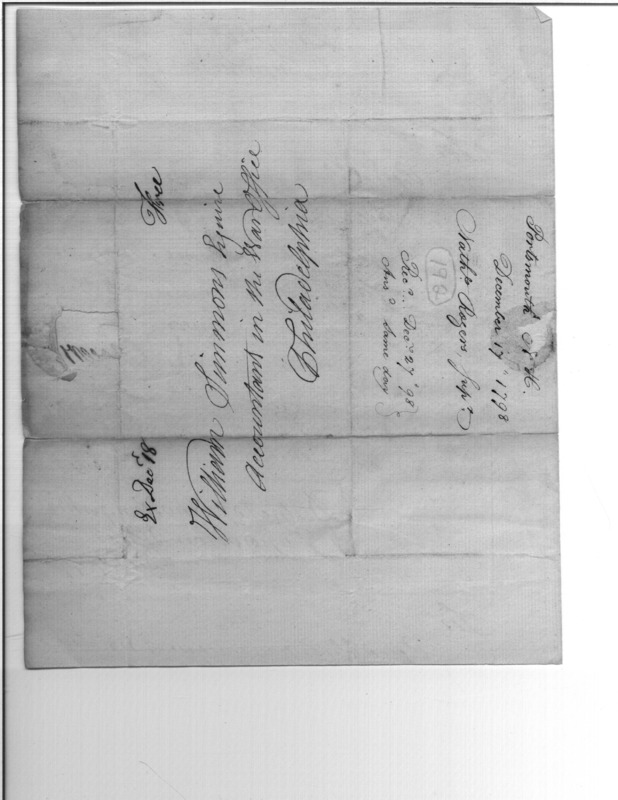 Portsmouth N. H.
December 17th 1798
Nathl. Rogers, Supr.
198
Recd. Decr. 27th '98
Ansd. same day
Free
Ex Decr 18
William Simmons Esquire
Accountant in the War Office
Philadelphia